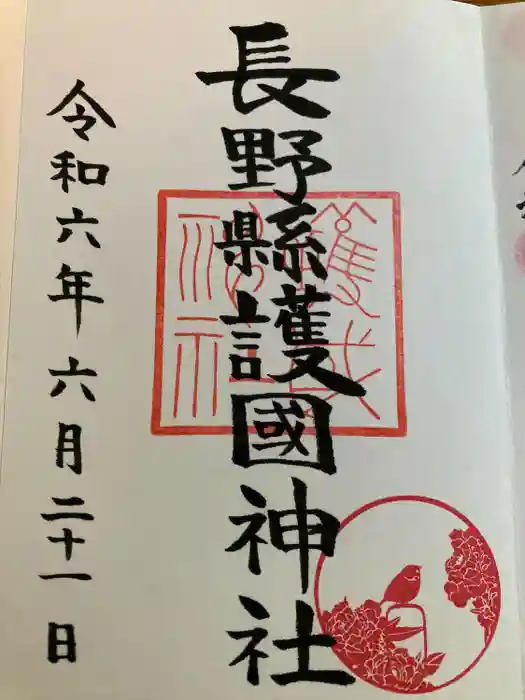 長野縣護國神社
令和六年六月二十一日